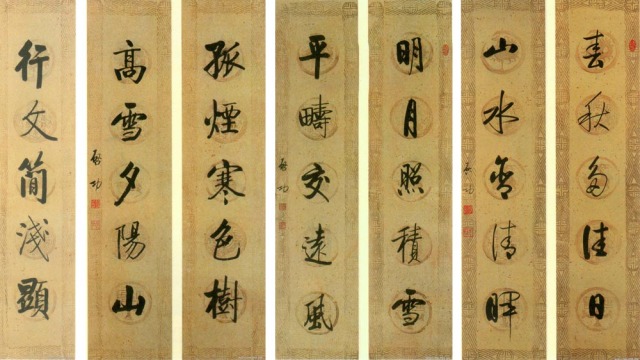 春秋多佳日
山水含清暉
启功
明月照積雪
平疇交遠風
启功
孤煙寒色樹
高雪夕陽山
启功
行文簡淺顯